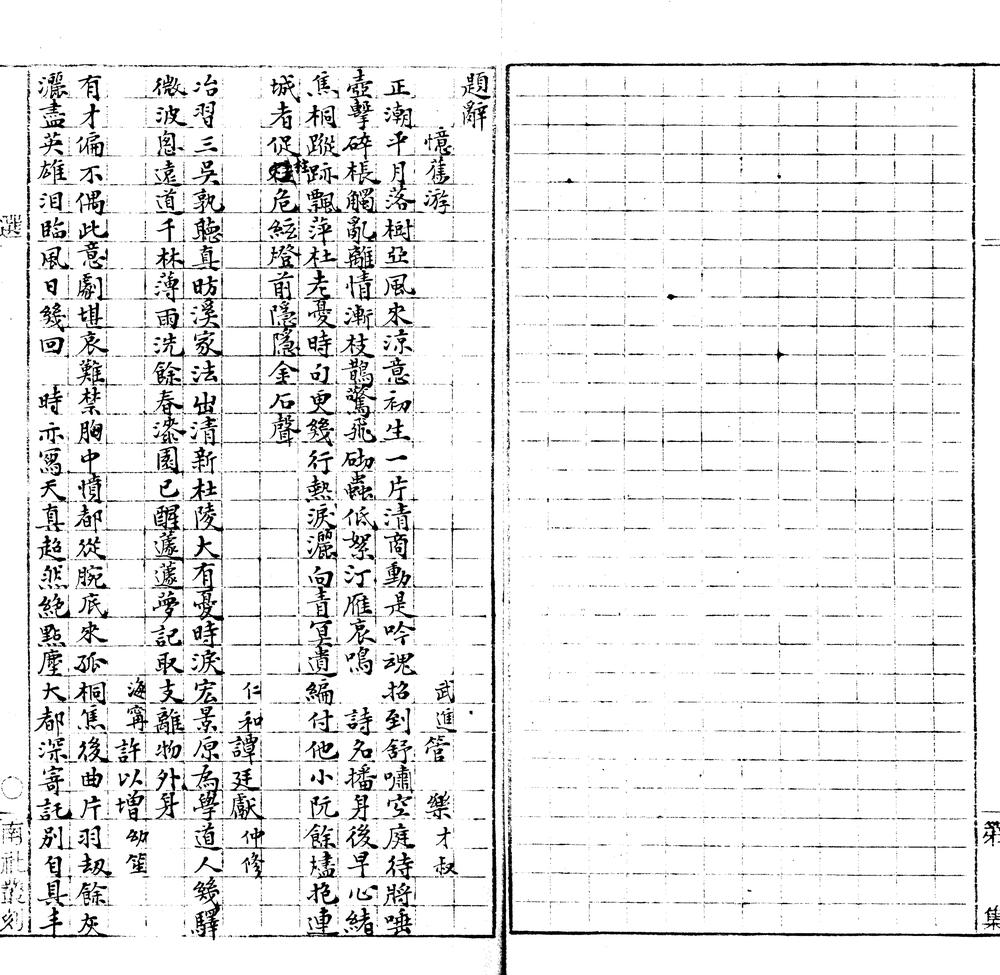 第
集
題辭
憶舊游
武進管 樂才叔
正潮平月落樹亞風來涼意初生一片清商動是吟魂招到舒嘯空庭待將唾
壺擊碎棖觸亂離情漸枝鵲驚飛砌蟲低絮汀雁哀鳴 詩名播身後早心緒
焦桐蹤跡飄萍杜老憂時句更幾行熱淚灑向青冥遺編付他小阮餘燼抱連
城者促柱危絃燈前隱隱金石聲
仁和譚廷獻仲修
冶習三吳孰聽真昉溪家法出清新杜陵大有憂時淚宏景原為學道人幾驛
微波恩遠道千林薄雨洗餘春漆園已醒蘧蘧夢記取支離物外身
海寧許以增幼笙
有才偏不偶此意劇堪哀難禁胸中憤都從腕底來孤桐焦後曲片羽劫餘灰
灑盡英雄淚臨風日幾回 時亦寫天真超然絶點塵大都深寄託別自具丰
選
南社叢刻